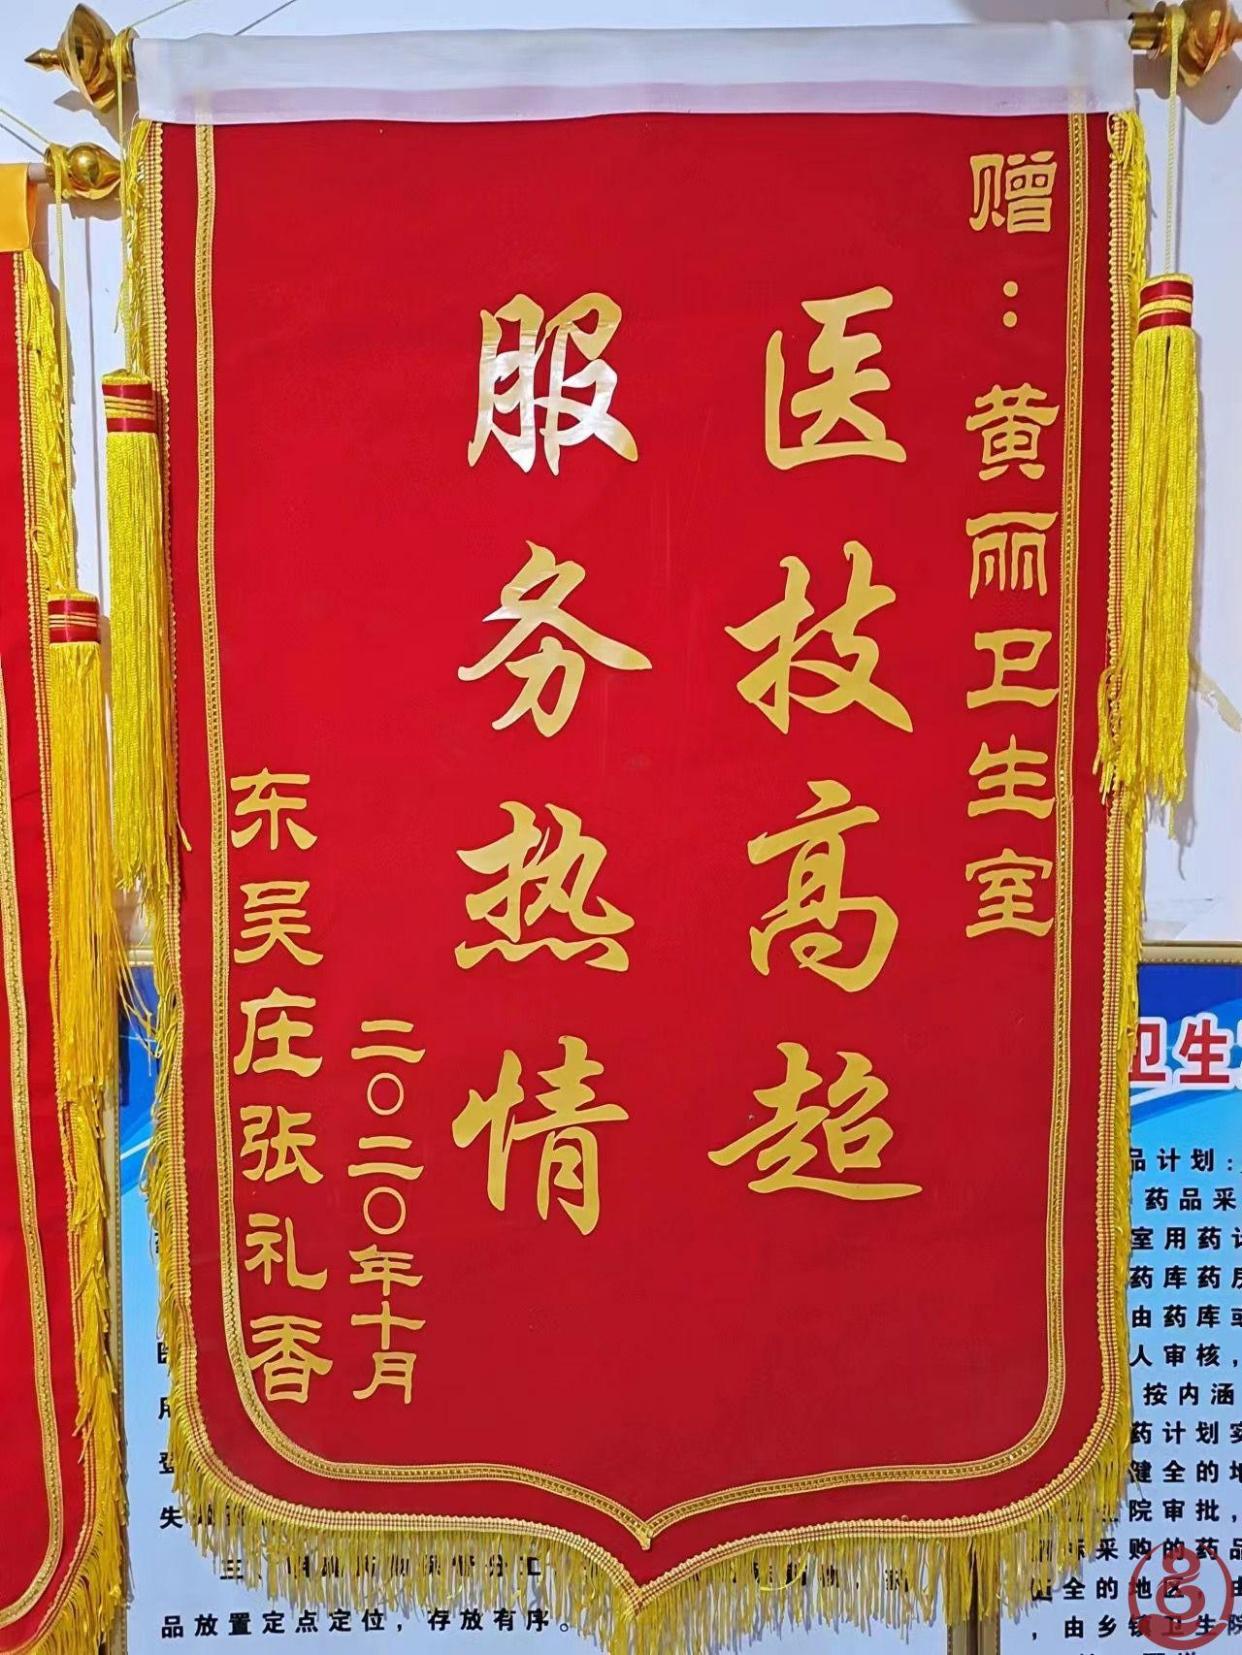 赠：黄丽卫生室
医技高超
服务热情
二〇二〇年十月
东吴庄张礼香
卫生
品计划：
药品采
室用药计
药库药房
由药库或
人审核，
按内涵
药计划实
健全的地
院审批，
采购的药品
全的地区
由乡镇卫生院
用
登
失
三、
品放置定点定位，存放有序。